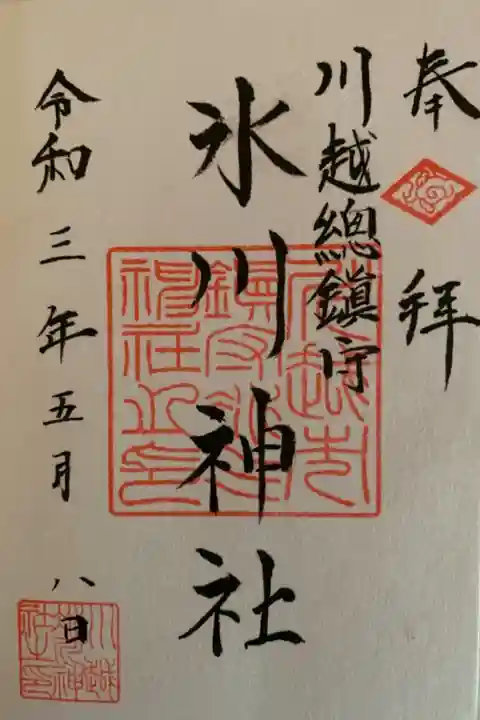 奉拝
川越總鎮守
氷川神社
令和三年五月八日